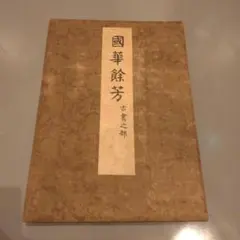 國華餘芳
古書之部